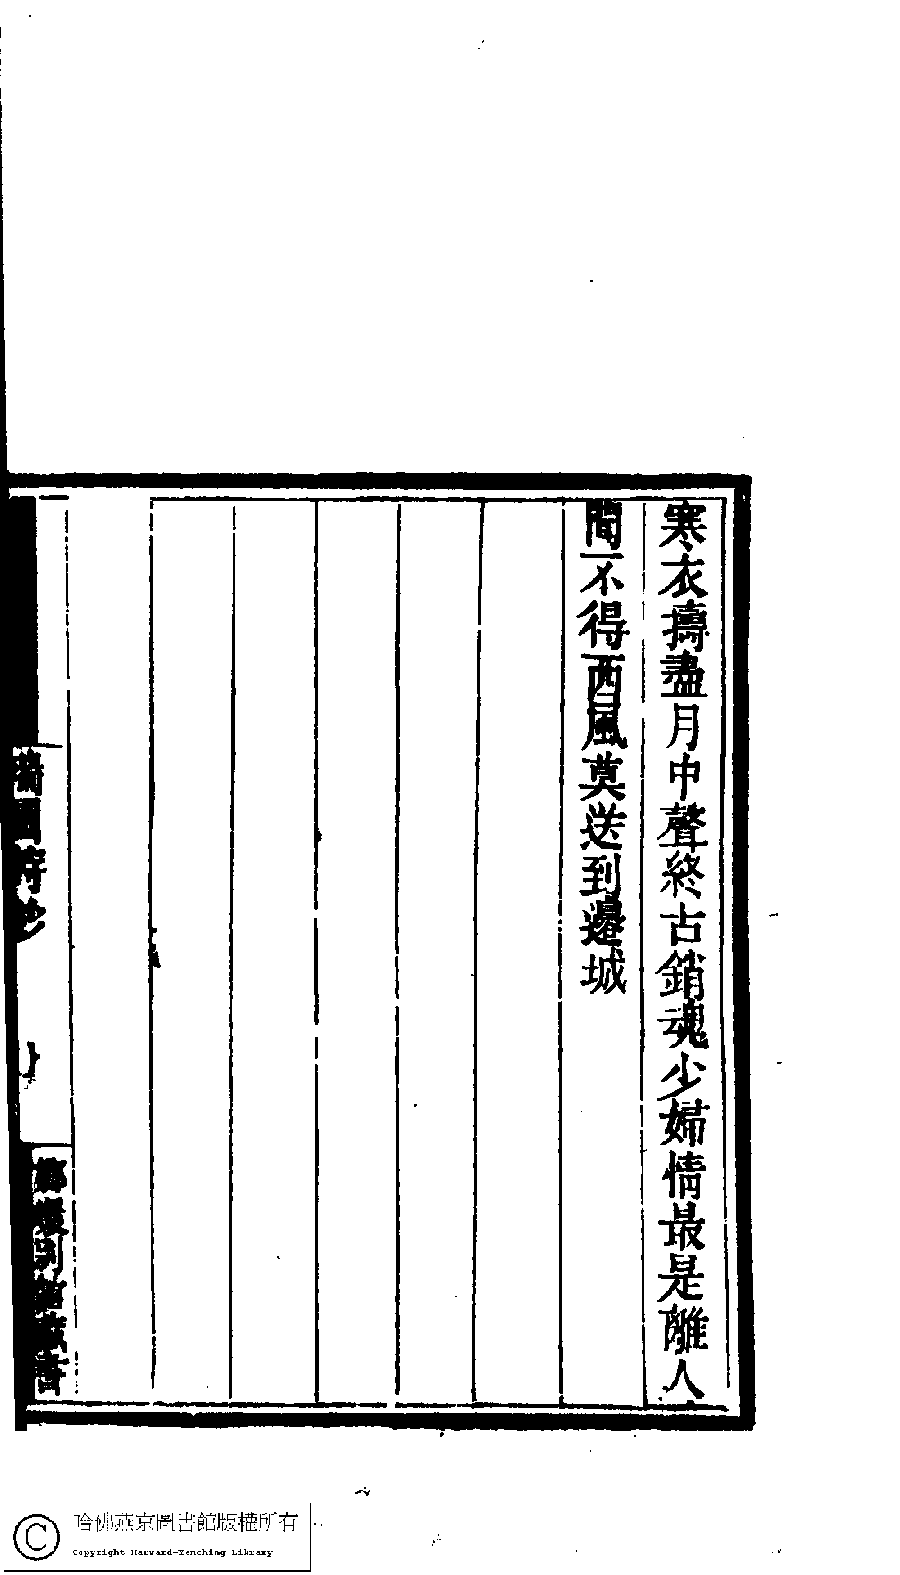 寒衣擣盡月中聲終古銷魂少婦情最是離人
聞不得西風莫送到邊城
園詩鈔
嬛別館藏書
哈佛燕京圖書館版權所有
Copyright Harvard-Yenching Library